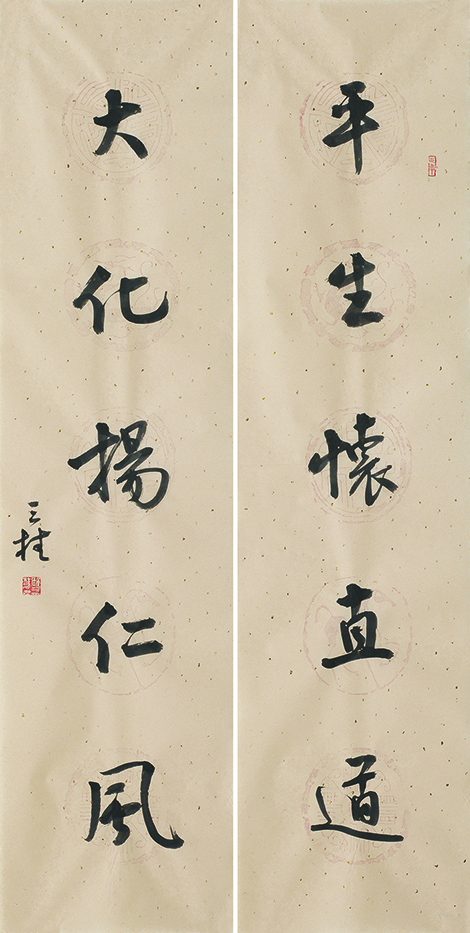 平生懷直道
大化揚仁風
三柱